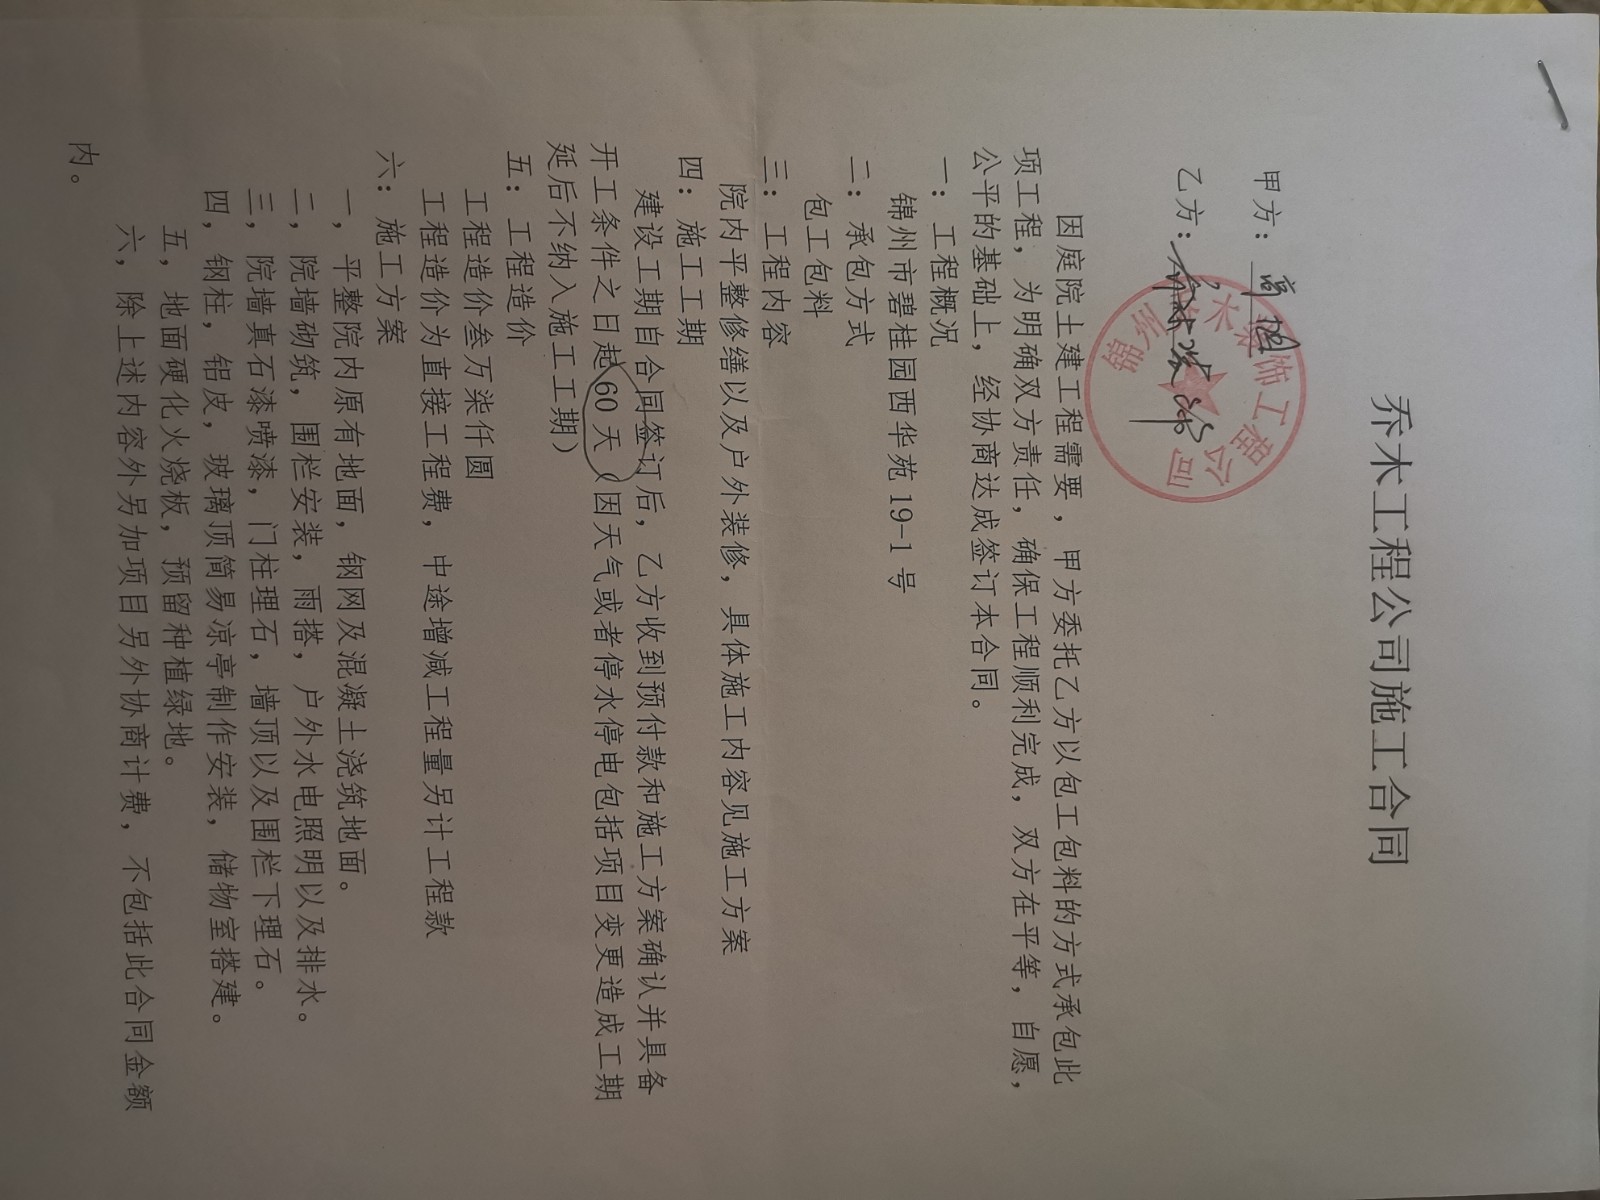 乔木工程公司施工合同
甲方：
乙方：
锦州乔木装饰工程公司
因庭院土建工程需要，甲方委托乙方以包工包料的方式承包此
项工程，为明确双方责任，确保工程顺利完成，双方在平等，自愿，
公平的基础上，经协商达成签订本合同。
一：工程概况
锦州市碧桂园西华苑19-1号
二：承包方式
包工包料
三：工程内容
院内平整修缮以及户外装修，具体施工内容见施工方案
四：施工工期
建设工期自合同签订后，乙方收到预付款和施工方案确认并具备
开工条件之日起60天（因天气或者停水停电包括项目变更造成工期
延后不纳入施工工期）
五：工程造价
工程造价叁万柒仟圆
工程造价为直接工程费，中途增减工程量另计工程款
六：施工方案
一，平整院内原有地面，钢网及混凝土浇筑地面。
二，院墙砌筑，围栏安装，雨搭，户外水电照明以及排水。
三，院墙真石漆喷漆，门柱理石，墙顶以及围栏下理石。
四，钢柱，铝皮，玻璃顶简易凉亭制作安装，储物室搭建。
五，地面硬化火烧板，预留种植绿地。
六，除上述内容外另加项目另外协商计费，不包括此合同金额
内。